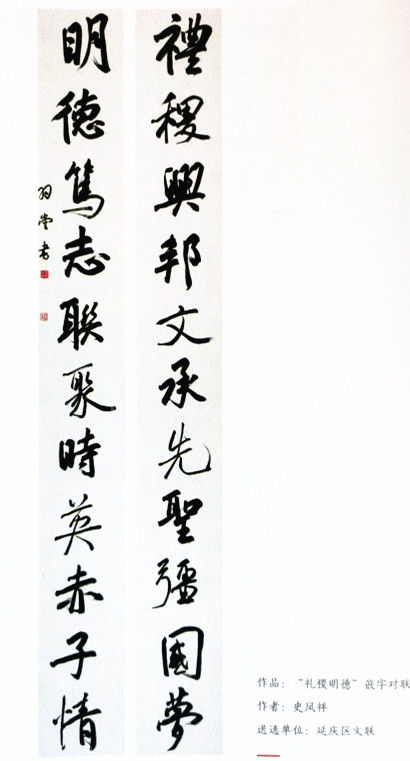 禮稷興邦文承先聖彊國夢
明德篤志聯聚時英赤子情
羽堂書
作品：“礼稷明德”嵌字对联
作者：史凤祥
送选单位：延庆区文联